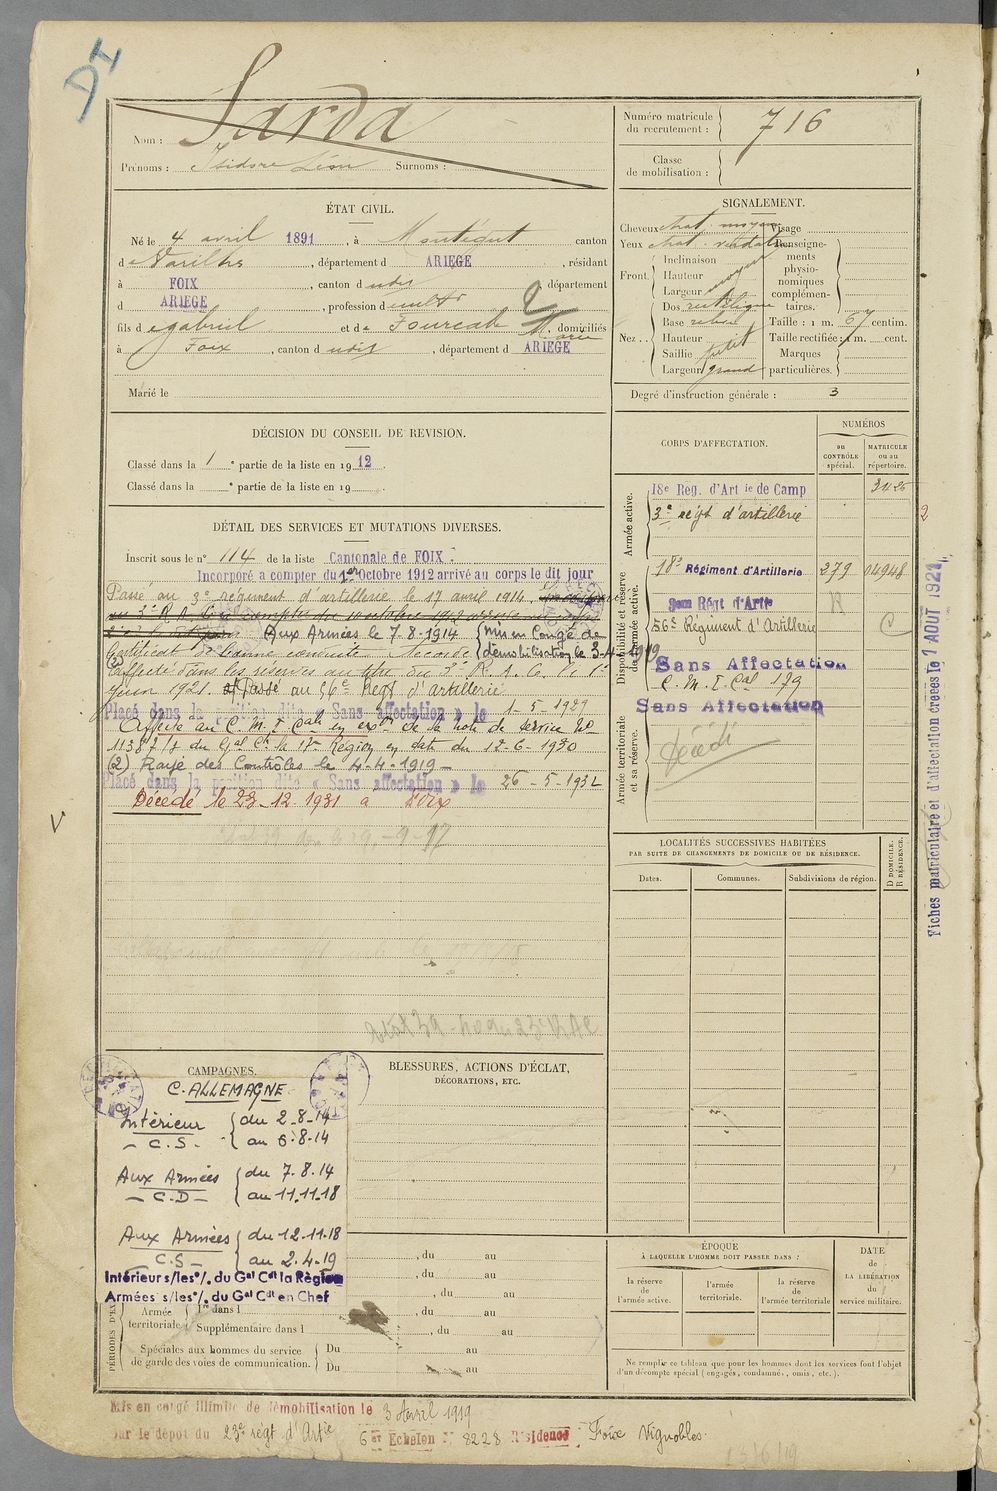 DI
Nom : Sarda
Prénoms : Isidore Léon Surnoms :
Numéro matricule du recrutement : 716
Classe de mobilisation :
ÉTAT CIVIL.
Né le 4 avril 1891, à Montégut canton
de Varilhes, département d ARIEGE, résidant
à FOIX, canton d udit département
d ARIEGE, profession d cultr
fils de Gabriel et de Fourcade Marie, domiciliés
à Foix, canton d udit, département d ARIEGE
Marié le
SIGNALEMENT.
Cheveux chat. moyen Visage
Yeux chat. verdatre Renseigne-
Inclinaison ments
Front Hauteur moyen physio-
Largeur nomiques
Dos rectiligne complémen-
taires.
Base relevé Taille : 1 m. 67 centim.
Nez Hauteur Taille rectifiée : 1 m. cent.
Saillie petit Marques
Largeur grand particulières.
Degré d'instruction générale : 3
DÉCISION DU CONSEIL DE REVISION.
Classé dans la 1e partie de la liste en 1912.
Classé dans la e partie de la liste en 19
DÉTAIL DES SERVICES ET MUTATIONS DIVERSES.
Inscrit sous le n° 114 de la liste Cantonale de FOIX.
Incorporé a compter du 1er Octobre 1912 arrivé au corps le dit jour
Passé au 3e régiment d'artillerie le 17 avril 1914.
Aux Armées le 7-8-1914 Mis en Congé de
Certificat de bonne conduite Accordé démobilisation le 3-4-1919
Affecté dans les réserves au titre du 3e R.A.C. le 1er
Juin 1921. passé au 56e Regt d'artillerie
Placé dans la position dite « Sans affectation » le 1-5-1929
Affecté au C.M.I. Cal en exon de la note de service No
1138 7/8 du Gal Ct la 17e Région en date du 12-6-1930
(2) Rayé des Contrôles le 4-4-1919
Placé dans la position dite « Sans affectation » le 26-5-1932
Décédé le 23-12-1931 a Foix
CORPS D'AFFECTATION.
NUMÉROS
au CONTRÔLE spécial.
MATRICULE ou au répertoire.
Armée active.
18e Rég. d'Art ie de Camp
3e régt d'artillerie
2
Disponibilité et réserve de l'armée active.
18e Régiment d'Artillerie 279 04948
9eme Régt d'Artie R
56e Régiment d'Artillerie C
Sans Affectation
C.M.I. Cal 179
Sans Affectation
Armée territoriale et sa réserve.
Décédé
Fiches matriculaire et d'affectation créées le 1 AOUT 1921
LOCALITÉS SUCCESSIVES HABITÉES
PAR SUITE DE CHANGEMENTS DE DOMICILE OU DE RÉSIDENCE.
Dates. Communes. Subdivisions de région. D DOMICILE. R RÉSIDENCE.
CAMPAGNES.
C. ALLEMAGNE
Intérieur du 2-8-14
C.S. au 6-8-14
Aux Armées du 7.8.14
C.D. au 11.11.18
Aux Armées du 12.11.18
C.S. au 2.4.19
Intérieur s/les°/. du Gal Cdt la Région
Armées s/les°/. du Gal Cdt en Chef
BLESSURES, ACTIONS D'ÉCLAT,
DÉCORATIONS, ETC.
, du au
, du au
, du au
PÉRIODES D'EX
Armée territoriale 1re dans l , du au
Supplémentaire dans l , du au
Spéciales aux hommes du service Du au
de garde des voies de communication. Du au
ÉPOQUE
À LAQUELLE L'HOMME DOIT PASSER DANS :
la réserve de l'armée active.
l'armée territoriale.
la réserve de l'armée territoriale
DATE de LA LIBÉRATION du service militaire.
Ne remplir ce tableau que pour les hommes dont les services font l'objet
d'un décompte spécial (engagés, condamné, omis, etc.).
Mis en congé illimité de démobilisation le 3 Avril 1919
par le dépot du 23e régt d'Artie 6e Echelon N° 8228 Résidence Foix Vignobles